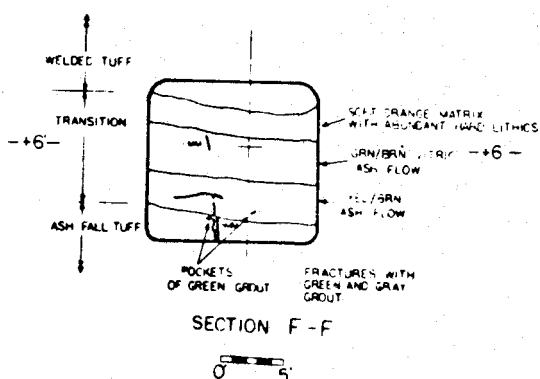 WELDED TUFF
TRANSITION
-+6'-
ASH FALL TUFF
SOFT ORANGE MATRIX
WITH ABUNDANT HARD LITHICS
GRN/BRN VITRIC -+6-
ASH FLOW
YEL/BRN
ASH FLOW
POCKETS
OF GREEN GROUT
FRACTURES WITH
GREEN AND GRAY
GROUT
SECTION F-F
0' 5'